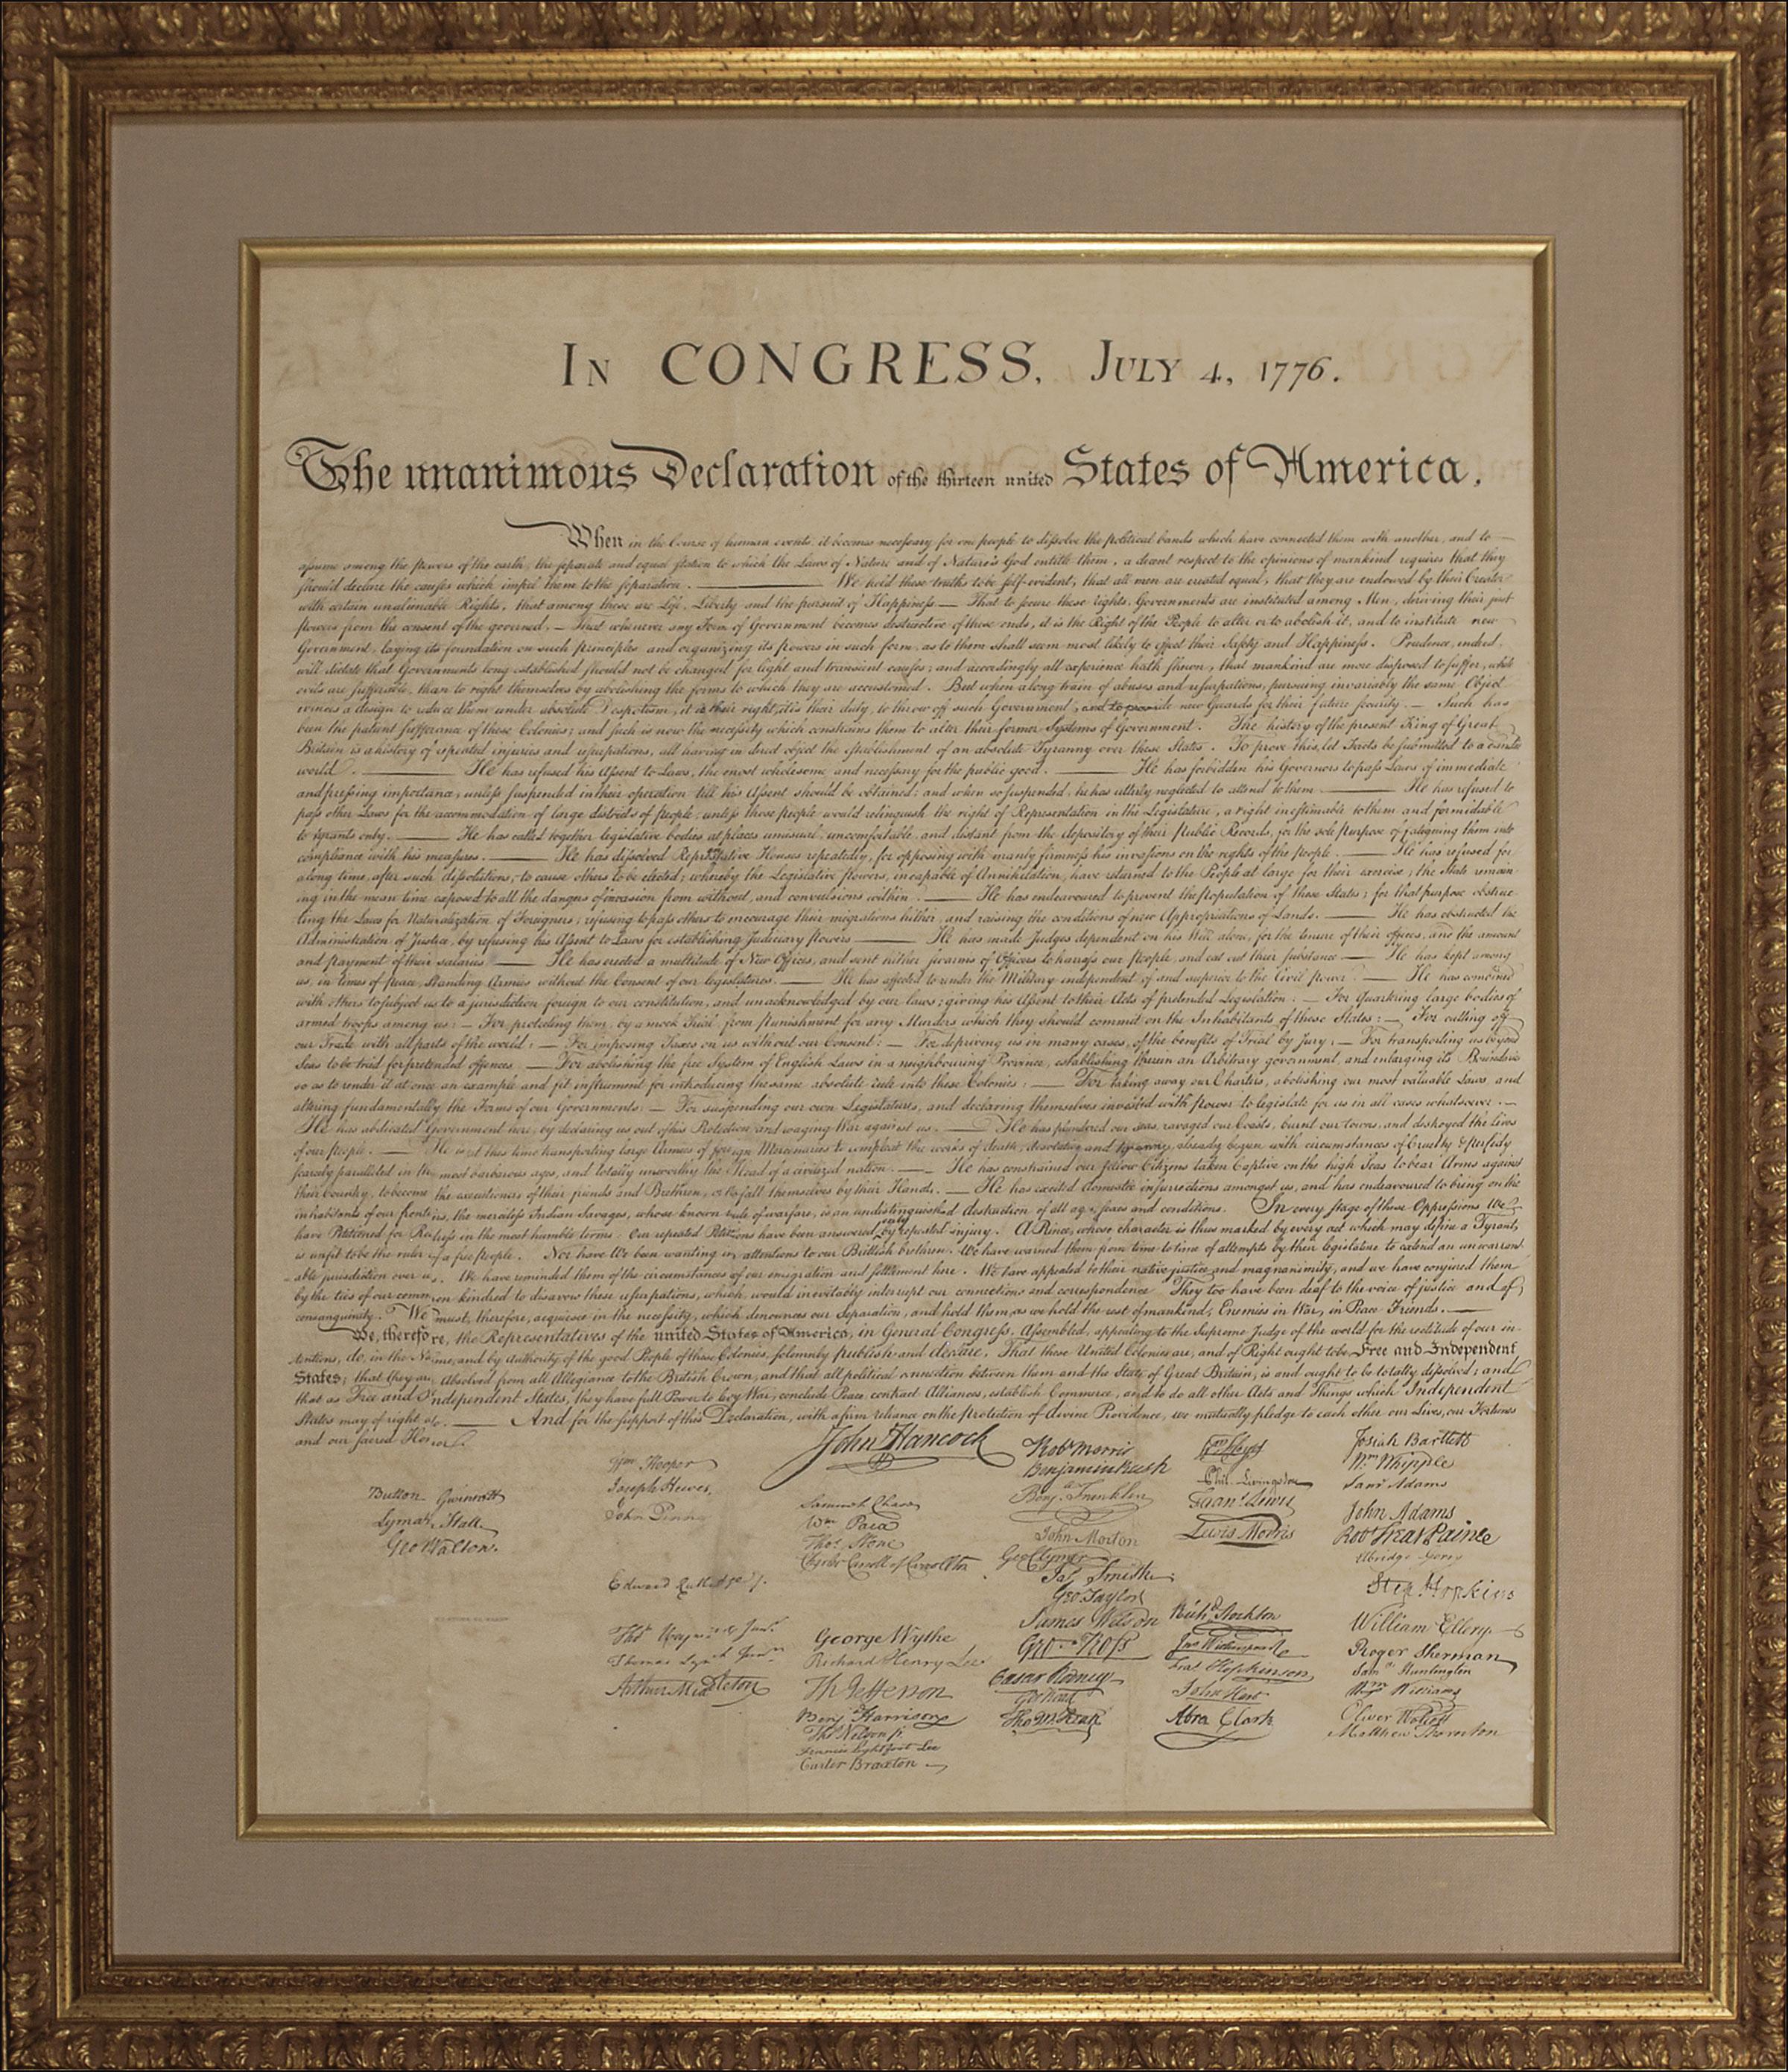 In CONGRESS, July 4, 1776.
The unanimous Declaration of the thirteen united States of America,
When in the Course of human events, it becomes necessary for one people to dissolve the political bands which have connected them with another, and to
assume among the powers of the earth, the separate and equal station to which the Laws of Nature and of Nature's God entitle them, a decent respect to the opinions of mankind requires that they
should declare the causes which impel them to the separation. We hold these truths to be self-evident, that all men are created equal, that they are endowed by their Creator
with certain unalienable Rights, that among these are Life, Liberty and the pursuit of Happiness — That to secure these rights, Governments are instituted among Men, deriving their just
powers from the consent of the governed, — That whenever any Form of Government becomes destructive of these ends, it is the Right of the People to alter or to abolish it, and to institute new
Government, laying its foundation on such principles and organizing its powers in such form, as to them shall seem most likely to effect their Safety and Happiness. Prudence, indeed,
will dictate that Governments long established should not be changed for light and transient causes; and accordingly all experience hath shewn, that mankind are more disposed to suffer, while
evils are sufferable, than to right themselves by abolishing the forms to which they are accustomed. But when a long train of abuses and usurpations, pursuing invariably the same Object
evinces a design to reduce them under absolute Despotism, it is their right, it is their duty, to throw off such Government, and to provide new Guards for their future security. — Such has
been the patient sufferance of these Colonies; and such is now the necessity which constrains them to alter their former Systems of Government. The history of the present King of Great
Britain is a history of repeated injuries and usurpations, all having in direct object the establishment of an absolute Tyranny over these States. To prove this, let Facts be submitted to a candid
world. He has refused his Assent to Laws, the most wholesome and necessary for the public good. He has forbidden his Governors to pass Laws of immediate
and pressing importance, unless suspended in their operation till his Assent should be obtained; and when so suspended, he has utterly neglected to attend to them. He has refused to
pass other Laws for the accommodation of large districts of people, unless those people would relinquish the right of Representation in the Legislature, a right inestimable to them and formidable
to tyrants only. He has called together legislative bodies at places unusual, uncomfortable, and distant from the depository of their Public Records, for the sole purpose of fatiguing them into
compliance with his measures. He has dissolved Representative Houses repeatedly, for opposing with manly firmness his invasions on the rights of the people. He has refused for
a long time, after such dissolutions, to cause others to be elected; whereby the Legislative powers, incapable of Annihilation, have returned to the People at large for their exercise; the State remain
ing in the mean time exposed to all the dangers of invasion from without, and convulsions within. He has endeavoured to prevent the population of these States; for that purpose obstruc-
ting the Laws for Naturalization of Foreigners; refusing to pass others to encourage their migrations hither, and raising the conditions of new Appropriations of Lands. He has obstructed the
Administration of Justice, by refusing his Assent to Laws for establishing Judiciary powers He has made Judges dependent on his Will alone, for the tenure of their offices, and the amount
and payment of their salaries. He has erected a multitude of New Offices, and sent hither swarms of Officers to harrass our people, and eat out their substance. He has kept among
us, in times of peace, Standing Armies without the Consent of our legislatures. He has affected to render the Military independent of and superior to the Civil power. He has combined
with others to subject us to a jurisdiction foreign to our constitution, and unacknowledged by our laws; giving his Assent to their Acts of pretended Legislation: — For quartering large bodies of
armed troops among us: — For protecting them, by a mock Trial, from punishment for any Murders which they should commit on the Inhabitants of these States: — For cutting off
our Trade with all parts of the world: — For imposing Taxes on us without our Consent: — For depriving us in many cases, of the benefits of Trial by Jury: — For transporting us beyond
Seas to be tried for pretended offences — For abolishing the free System of English Laws in a neighbouring Province, establishing therein an Arbitrary government, and enlarging its Boundaries
so as to render it at once an example and fit instrument for introducing the same absolute rule into these Colonies: — For taking away our Charters, abolishing our most valuable Laws, and
altering fundamentally the Forms of our Governments: — For suspending our own Legislatures, and declaring themselves invested with power to legislate for us in all cases whatsoever. —
He has abdicated Government here, by declaring us out of his Protection and waging War against us. He has plundered our seas, ravaged our Coasts, burnt our towns, and destroyed the lives
of our people. He is at this time transporting large Armies of foreign Mercenaries to compleat the works of death, desolation and tyranny, already begun with circumstances of Cruelty & perfidy
scarcely paralleled in the most barbarous ages, and totally unworthy the Head of a civilized nation. — He has constrained our fellow Citizens taken Captive on the high Seas to bear Arms against
their Country, to become the executioners of their friends and Brethren, or to fall themselves by their Hands. — He has excited domestic insurrections amongst us, and has endeavoured to bring on the
inhabitants of our frontiers, the merciless Indian Savages, whose known rule of warfare, is an undistinguished destruction of all ages, sexes and conditions. In every stage of these Oppressions We
have Petitioned for Redress in the most humble terms: Our repeated Petitions have been answered only by repeated injury. A Prince, whose character is thus marked by every act which may define a Tyrant,
is unfit to be the ruler of a free people. Nor have We been wanting in attentions to our Brittish brethren. We have warned them from time to time of attempts by their legislature to extend an unwarrant-
able jurisdiction over us. We have reminded them of the circumstances of our emigration and settlement here. We have appealed to their native justice and magnanimity, and we have conjured them
by the ties of our common kindred to disavow these usurpations, which, would inevitably interrupt our connections and correspondence They too have been deaf to the voice of justice and of
consanguinity. We must, therefore, acquiesce in the necessity, which denounces our Separation, and hold them, as we hold the rest of mankind, Enemies in War, in Peace Friends. —
We, therefore, the Representatives of the united States of America, in General Congress, Assembled, appealing to the Supreme Judge of the world for the rectitude of our in-
tentions, do, in the Name, and by Authority of the good People of these Colonies, solemnly publish and declare, That these United Colonies are, and of Right ought to be Free and Independent
States; that they are Absolved from all Allegiance to the British Crown, and that all political connection between them and the State of Great Britain, is and ought to be totally dissolved; and
that as Free and Independent States, they have full Power to levy War, conclude Peace, contract Alliances, establish Commerce, and to do all other Acts and Things which Independent
States may of right do. And for the support of this Declaration, with a firm reliance on the protection of divine Providence, we mutually pledge to each other our Lives, our Fortunes
and our sacred Honor.
Button Gwinnett
Lyman Hall
Geo Walton.
Wm Hooper
Joseph Hewes,
John Penn
Edward Rutledge
Thos Heyward Junr
Thomas Lynch Junr
Arthur Middleton
John Hancock
Samuel Chase
Wm Paca
Thos Stone
Charles Carroll of Carrollton
George Wythe
Richard Henry Lee
Th Jefferson
Benj Harrison
Thos Nelson jr.
Francis Lightfoot Lee
Carter Braxton
Robt Morris
Benjamin Rush
Benj. Franklin
John Morton
Geo Clymer
Jas Smith
Geo Taylor
James Wilson
Geo Ross
Caesar Rodney
Geo Read
Tho M:Kean
Wm Floyd
Phil. Livingston
Frans Lewis
Lewis Morris
Richd Stockton
Jno Witherspoon
Fras Hopkinson
John Hart
Abra Clark
Josiah Bartlett
Wm Whipple
Saml Adams
John Adams
Robt Treat Paine
Elbridge Gerry
Step Hopkins
William Ellery
Roger Sherman
Saml Huntington
Wm Williams
Oliver Wolcott
Matthew Thornton